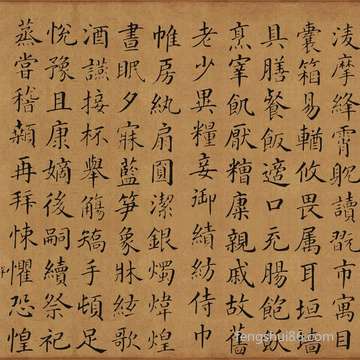 淩摩絳霄耽讀翫市寓目
囊箱易輶攸畏属耳垣墻
具膳餐飯適口充腸飽飫
烹宰飢厭糟糠親戚故舊
老少異糧妾御績紡侍巾
帷房紈扇圓潔銀燭煒煌
晝眠夕寐藍笋象牀絃歌
酒讌接杯舉觴矯手頓足
悅豫且康嫡後嗣續祭祀
蒸嘗稽顙再拜悚懼恐惶
fengshui86.com